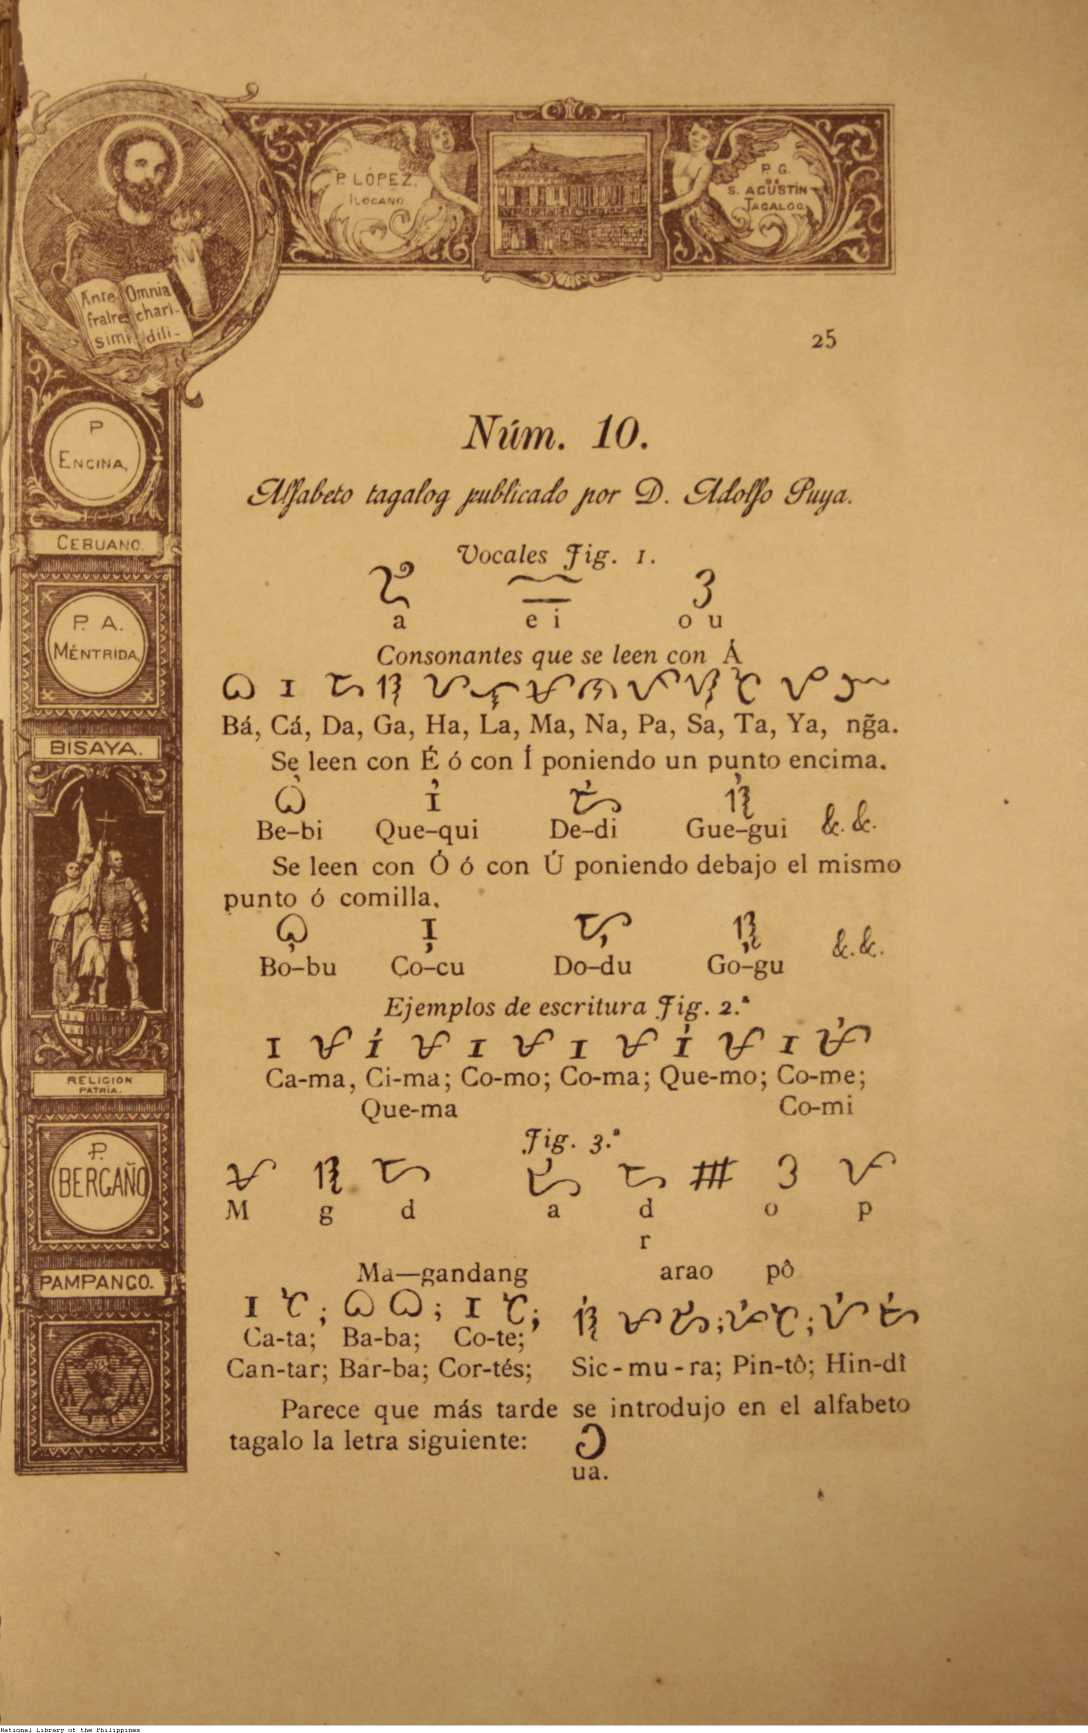 P. LÓPEZ.
ILOCANO
P. G.
DE
S. AGUSTÍN
TAGALOG.
Ante Omnia
fratres chari-
simi dili-
25
P
ENCINA,
CEBUANO.
P. A.
MÉNTRIDA,
BISAYA.
RELIGION
PATRIA.
P.
BERGAÑO
PAMPANGO.
Núm. 10.
Alfabeto tagalog publicado por D. Adolfo Puya.
Vocales Fig. 1.
ᜀ ᜁ ᜂ
a e i o u
Consonantes que se leen con Á
ᜊ ᜃ ᜇ ᜄ ᜑ ᜎ ᜋ ᜈ ᜉ ᜐ ᜆ ᜌ ᜅ
Bá, Cá, Da, Ga, Ha, La, Ma, Na, Pa, Sa, Ta, Ya, ng̃a.
Se leen con É ó con Í poniendo un punto encima.
ᜊᜒ ᜃᜒ ᜇᜒ ᜄᜒ &. &.
Be–bi Que–qui De–di Gue–gui
Se leen con Ó ó con Ú poniendo debajo el mismo
punto ó comilla.
ᜊᜓ ᜃᜓ ᜇᜓ ᜄᜓ &. &.
Bo–bu Co–cu Do–du Go–gu
Ejemplos de escritura Fig. 2.ª
ᜃ ᜋ ᜃᜒ ᜋ ᜃ ᜋ ᜃ ᜋ ᜃᜒ ᜋ ᜃ ᜋᜒ
Ca-ma, Ci-ma; Co-mo; Co-ma; Que-mo; Co-me;
Que-ma Co-mi
Fig. 3.ª
ᜋ ᜄ ᜇ ᜀ ᜇ ᜂ ᜉ
M g d a d o p
r
Ma—gandang arao pô
ᜃ ᜆ ; ᜊ ᜊ ; ᜃ ᜆ ;
Ca-ta; Ba-ba; Co-te;
Can-tar; Bar-ba; Cor-tés; Sic-mu-ra; Pin-tô; Hin-dî
Parece que más tarde se introdujo en el alfabeto
tagalo la letra siguiente:
ua.
National Library of the Philippines